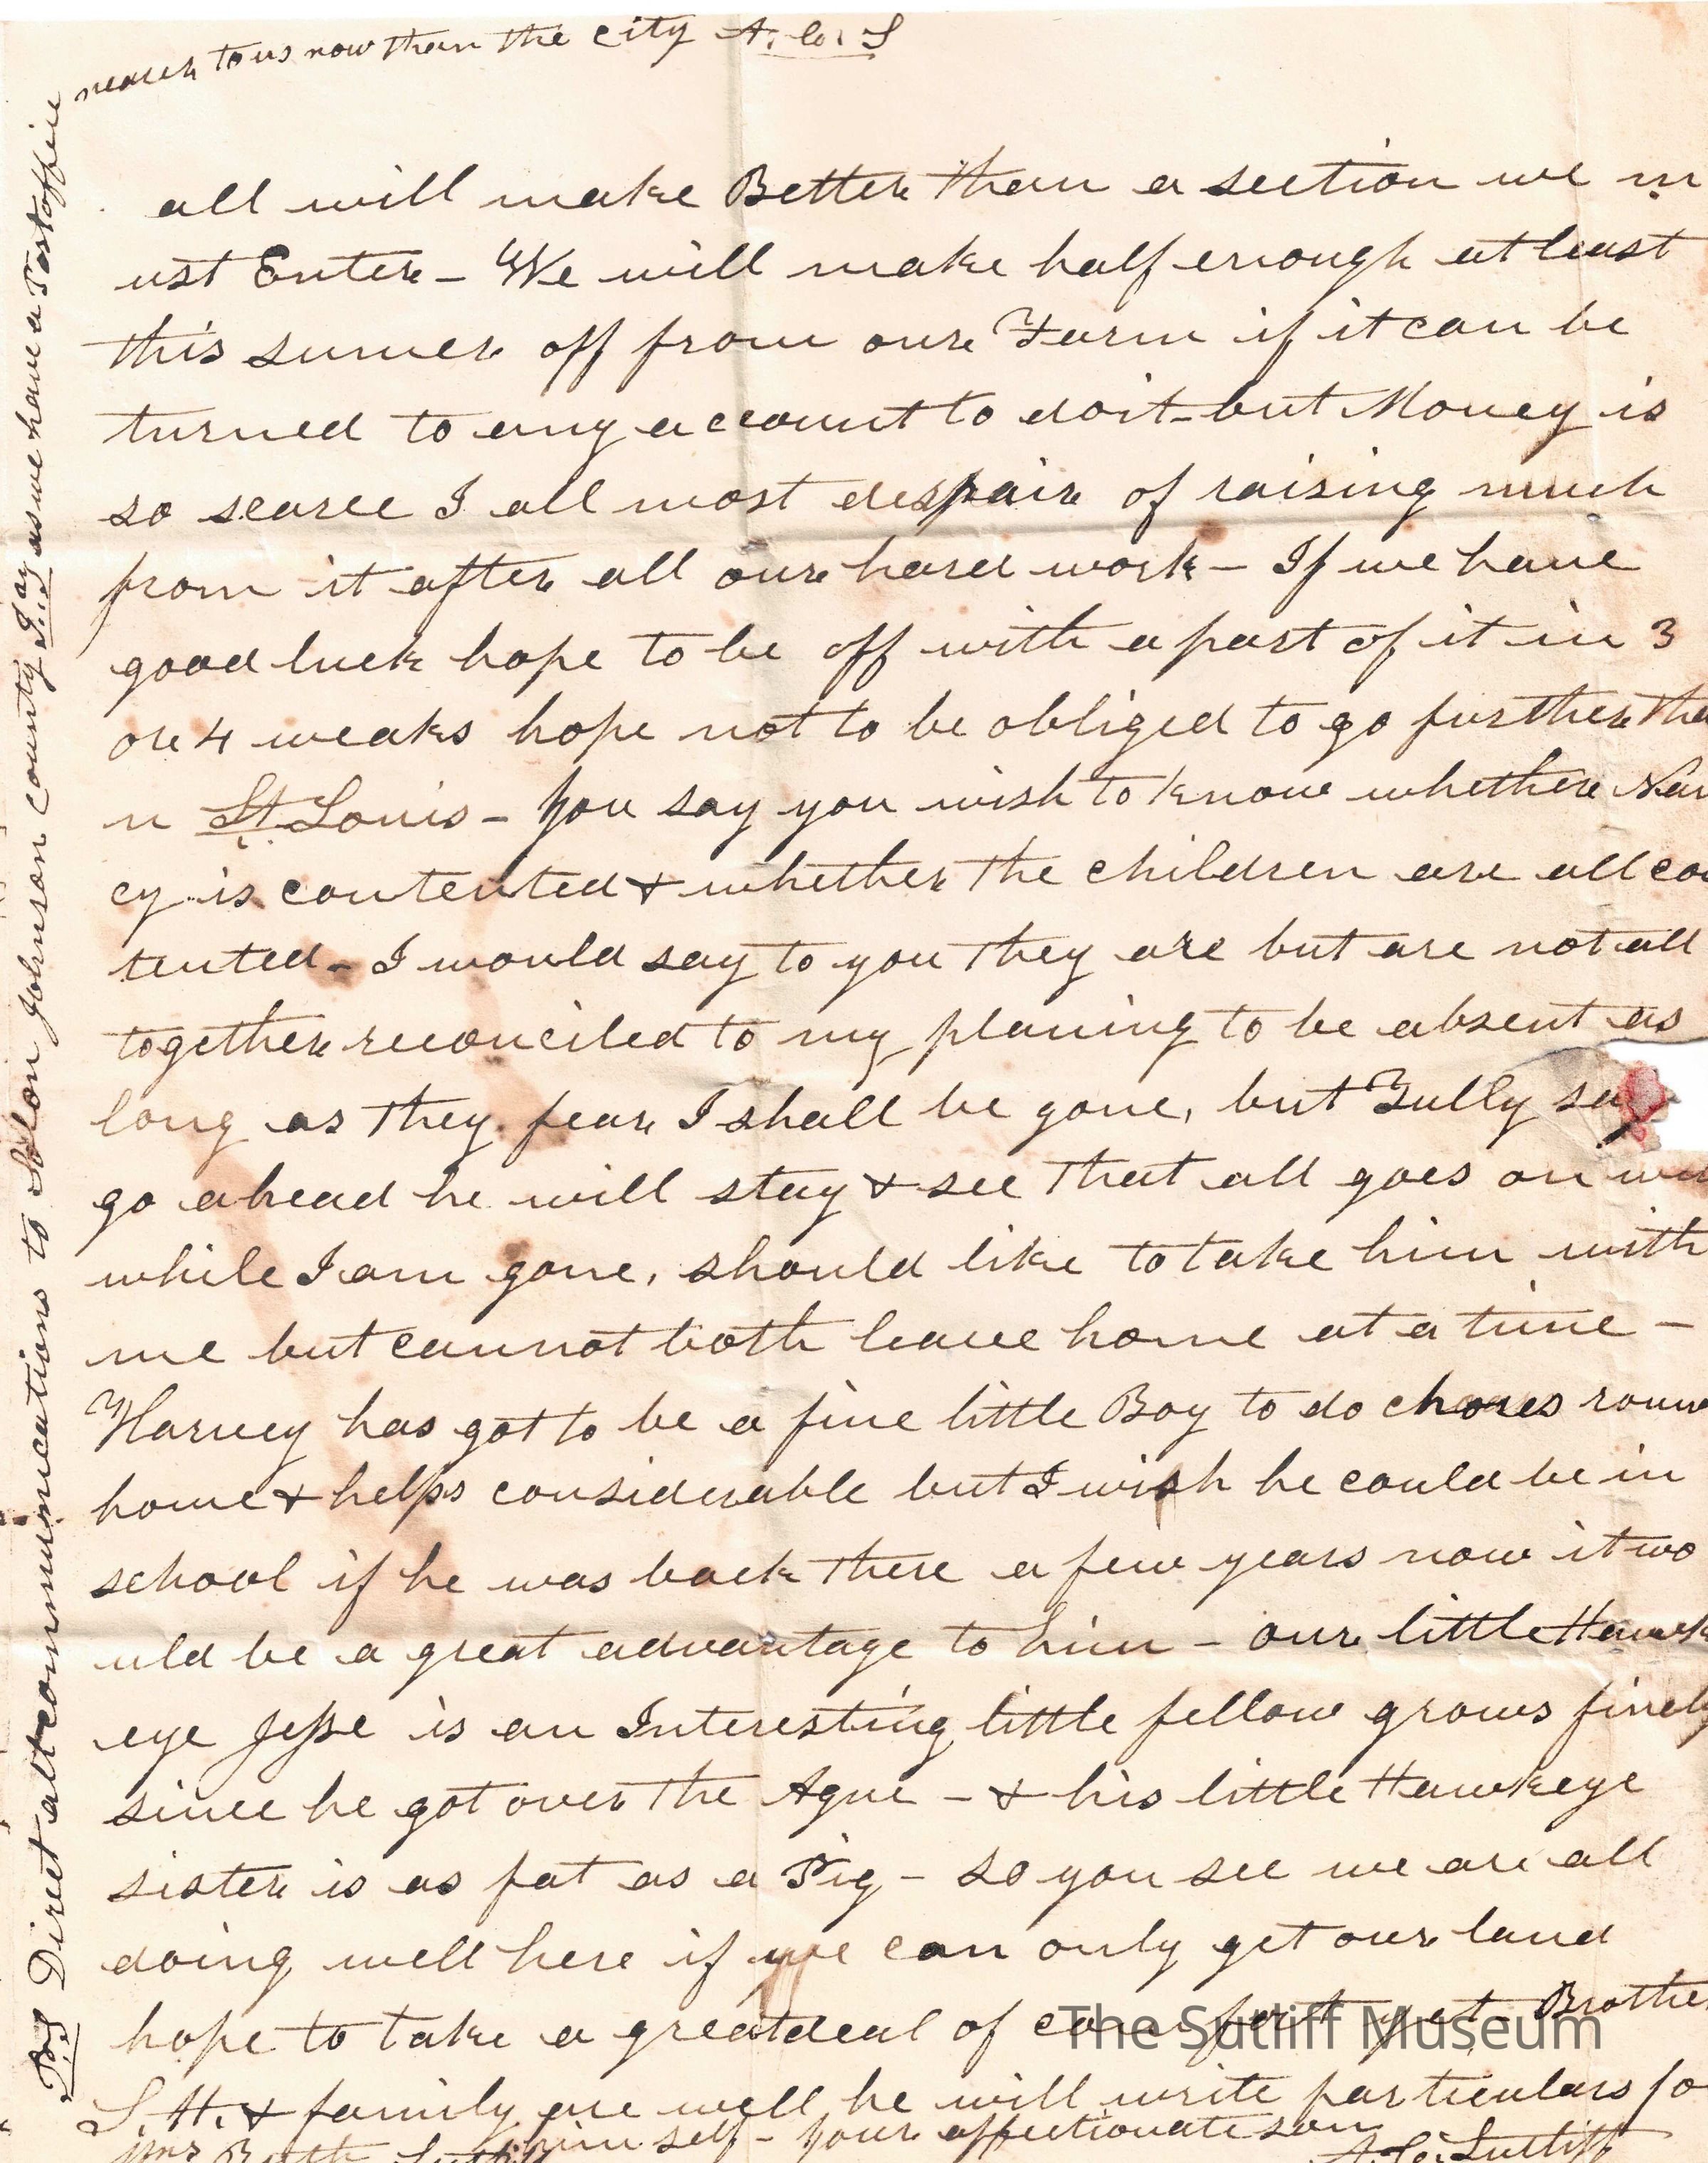 nearer to us now than the city A. C. S
all will make Better than a section we m
ust Enter - We will make half enough at least
this sumer off from our Farm if it can be
turned to any account to do it - but Money is
so scarce I all most despair of raising much
from it after all our hard work - If we have
good luck hope to be off with a part of it in 3
or 4 weaks hope not to be obliged to go further tha
n St Louis - you say you wish to know whether Nan
cy is contented & whether the children are all con
tented - I would say to you they are but are not all
together reconciled to my planing to be absent as
long as they fear I shall be gone, but Gully say
go ahead he will stay & see that all goes on
while I am gone, should like to take him with
me but cannot both leave home at a time -
Harvey has got to be a fine little Boy to do chores roun
home & helps considerable but I wish he could be in
school if he was back there a few years now it wo
uld be a great advantage to him - our little Hawk
eye Jesse is an Interesting little fellow grows finely
since he got over the Ague - & his little Hawkeye
sister is as fat as a Pig - so you see we are all
doing well here if we can only get our land
hope to take a great deal of comfort yet - Brother
S. H. & family are well he will write particulars fo
himself - your affectionate son
Mrs Ruth Sutliff A. C. Sutliff
P.S Direct all communications to Solon Johnson County I.oy as we have a Postoffice
The Sutliff Museum